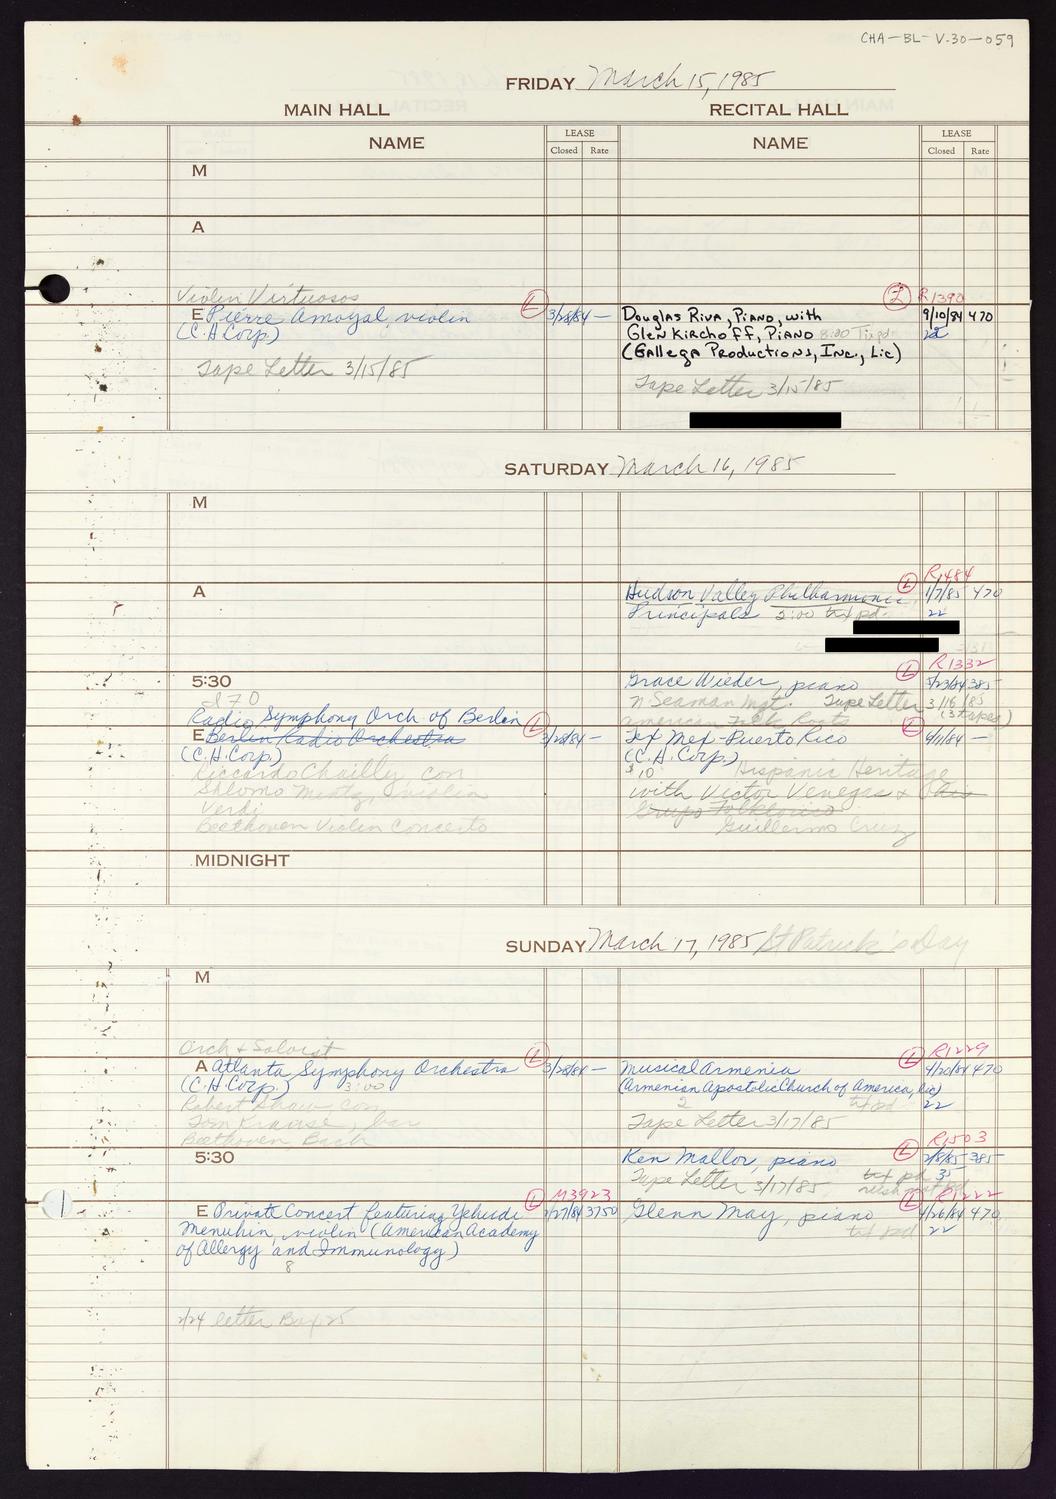 CHA-BL-V.30-059
FRIDAY March 15, 1985
MAIN HALL
RECITAL HALL
NAME
LEASE
Closed Rate
NAME
LEASE
Closed Rate
M
A
Violin Virtuosos
E Pierre Amoyal, violin
L
3/28/84 —
(C.H. Corp.)
Tape Letter 3/15/85
L R1390
Douglas Riva, Piano, with
9/10/84 470
Glen Kirchoff, Piano 8:00 Tix pd.
22
(Gallega Productions, Inc., Lic)
Tape Letter 3/15/85
SATURDAY March 16, 1985
M
A
L R1484
Hudson Valley Philharmonic
1/7/85 470
Principals 2:00 txt pd.
22
5:30
L R1332
Grace Wieder, piano
5/23/84 385
N Seaman Mgt. Tape Letter 3/16/85
(3 tapes)
I 70
Radio Symphony Orch of Berlin
L
E Berlin Radio Orchestra
3/28/84 —
(C.H. Corp.)
Riccardo Chailly, con
Shlomo Mintz, violin
Verdi
Beethoven Violin Concerto
American Folk Roots
L
Tex Mex-Puerto Rico
9/11/84 —
(C.H. Corp.)
$10 Hispanic Heritage
with Victor Venegas & his
Grupo Folklorico
Guillermo Cruz
MIDNIGHT
SUNDAY March 17, 1985 St Patrick's Day
M
Orch & Soloist
A Atlanta Symphony Orchestra
L
3/28/84 —
(C.H. Corp.) 3:00
Robert Shaw, con
Tom Krause, bar
Beethoven Bach
L R1229
Musical Armenia
4/20/84 470
(Armenian Apostolic Church of America, lic)
2 txt pd
22
Tape Letter 3/17/85
5:30
L R1503
Ken Mallor, piano
2/8/85 385
txt pd 35
Tape Letter 3/17/85
L M3923
E Private Concert featuring Yehudi
3750
Menuhin, violin (American Academy
of Allergy and Immunology)
8
L R1222
Glenn May, piano
4/26/84 470
txt pd
22
2/24 letter Box 25